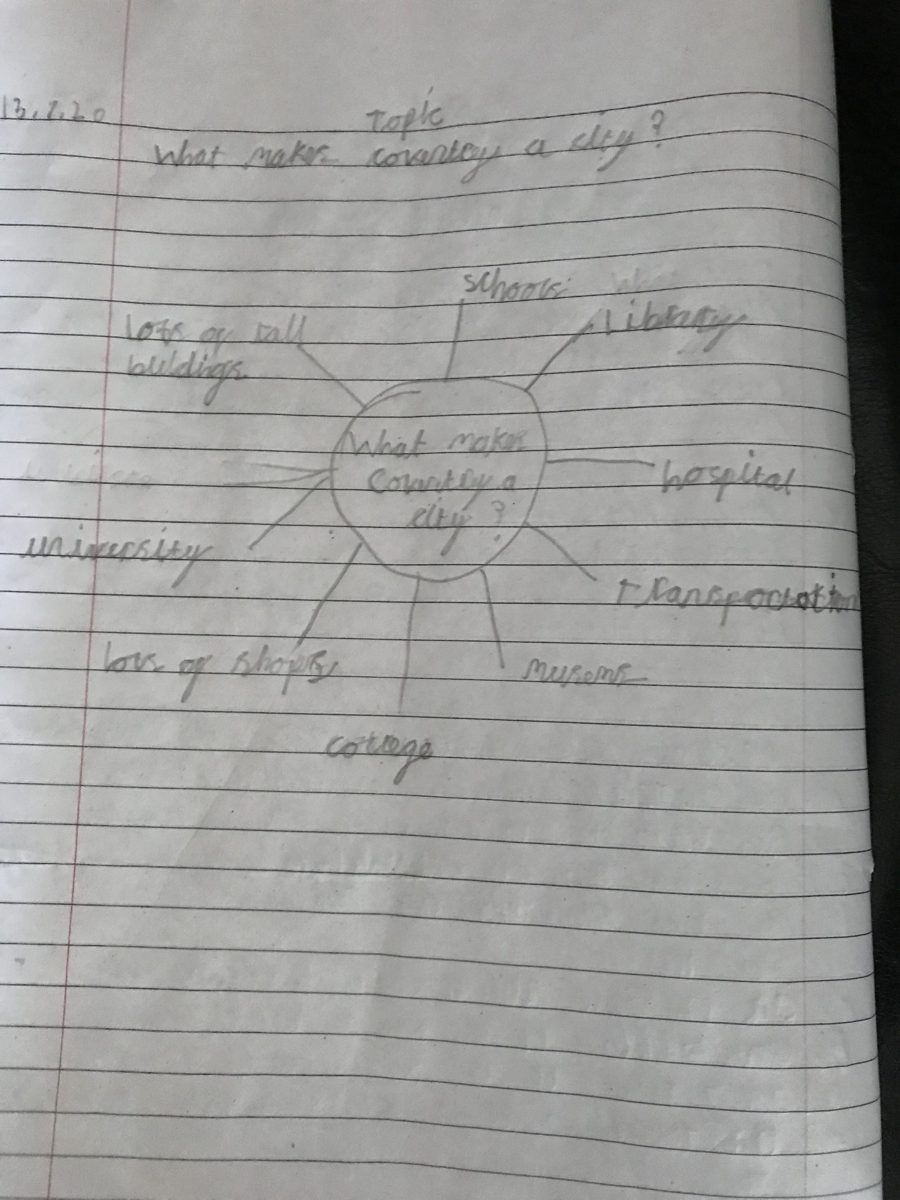 13.7.20
Topic
What makes coventry a city?
schools
Library
lots of tall
buildings
What makes
Coventry a
city?
hospital
university
transportation
lots of shops
musems
college